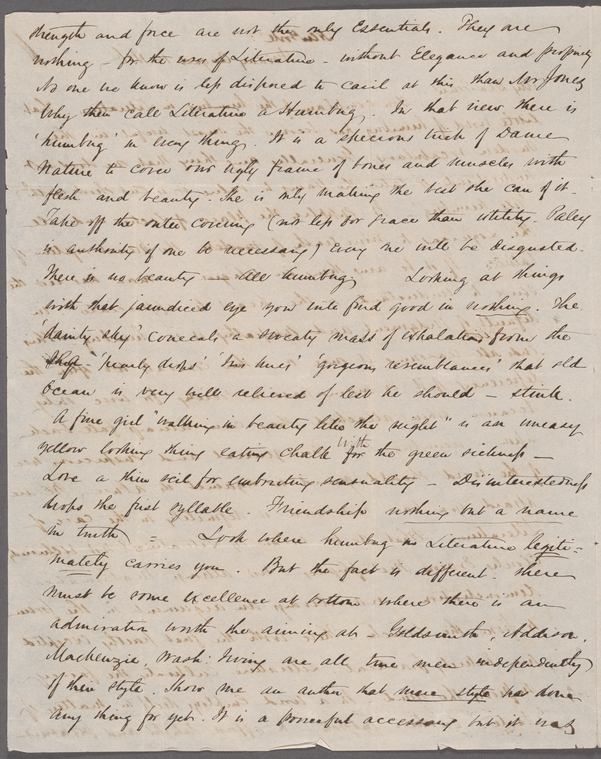 strength and force are not the only Essentials. They are
nothing - for the uses of Literature - without Elegance and propriety
No one we know is less disposed to cavil at this than Mr Jones
Why then call Literature a Humbug. In that view there is
'humbug' in every thing. It is a specious trick of Dame
Nature to cover our ugly frame of bones and muscles with
flesh and beauty. She is only making the best she can of it -
Take off the outer covering (not less for grace than utility. Paley
is authority if one be necessary) every one will be disgusted.
There is no beauty All humbug Looking at things
with that jaundiced eye you will find good in nothing. The
'dainty sky' conceals a sweaty mass of exhalation from the
'pearly drops' hues' 'gorgeous resemblances' that old
Ocean is very well relieved of lest he should - stink.
A fine girl "walking in beauty like the night" is an uneasy
yellow looking thing eating chalk with the green sickness -
Love a thin veil for sensuality - Disinterestedness
drops the first syllable. Friendship nothing but a name
in truth = Look where humbug in Literature legiti=
mately carries you. But the fact is different. There
must be some excellence at bottom where there is an
admiration worth the aiming at - Goldsmith, Addison,
Mackenzie, Wash: Irving are all true men independently
of their style. Show me an author that mere style has done
any thing for yet. It is a powerful accessory but it